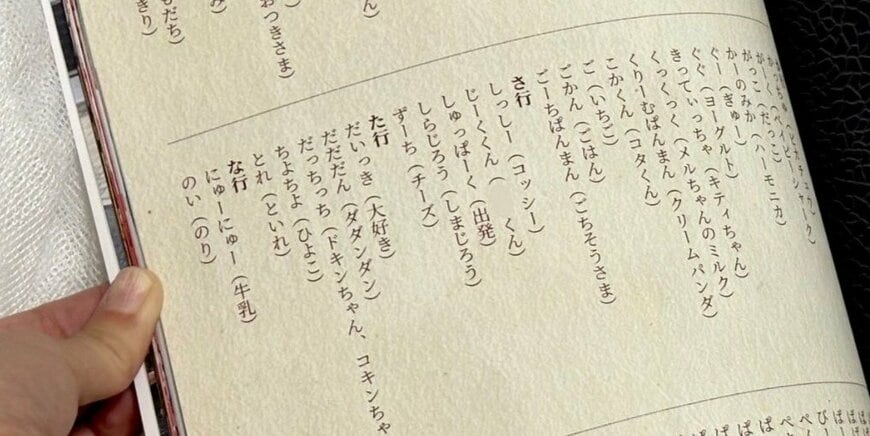 ん）
おつきさま）
み）
もだち）
きり）
がっこ（だっこ）
かーのみか（ハーモニカ）
ぐー（ぎゅー）
ぐぐ（ヨーグルト）
きってぃっちゃ（キティちゃん）
くっくっく（メルちゃんのミルク）
くりーむぱんまん（クリームパンダ）
こかくん（コタくん）
ご（いちご）
ごかん（ごはん）
ごーちぱんまん（ごちそうさま）
さ行
しっしー（コッシー）
じーくくん（ くん）
しゅっぱーく（出発）
しらじろう（しまじろう）
ずーち（チーズ）
た行
だいっき（大好き）
だだだん（ダダンダン）
だっちっち（ドキンちゃん、コキンちゃ
ちよちよ（ひよこ）
とれ（といれ）
な行
にゅーにゅー（牛乳）
のい（のり）